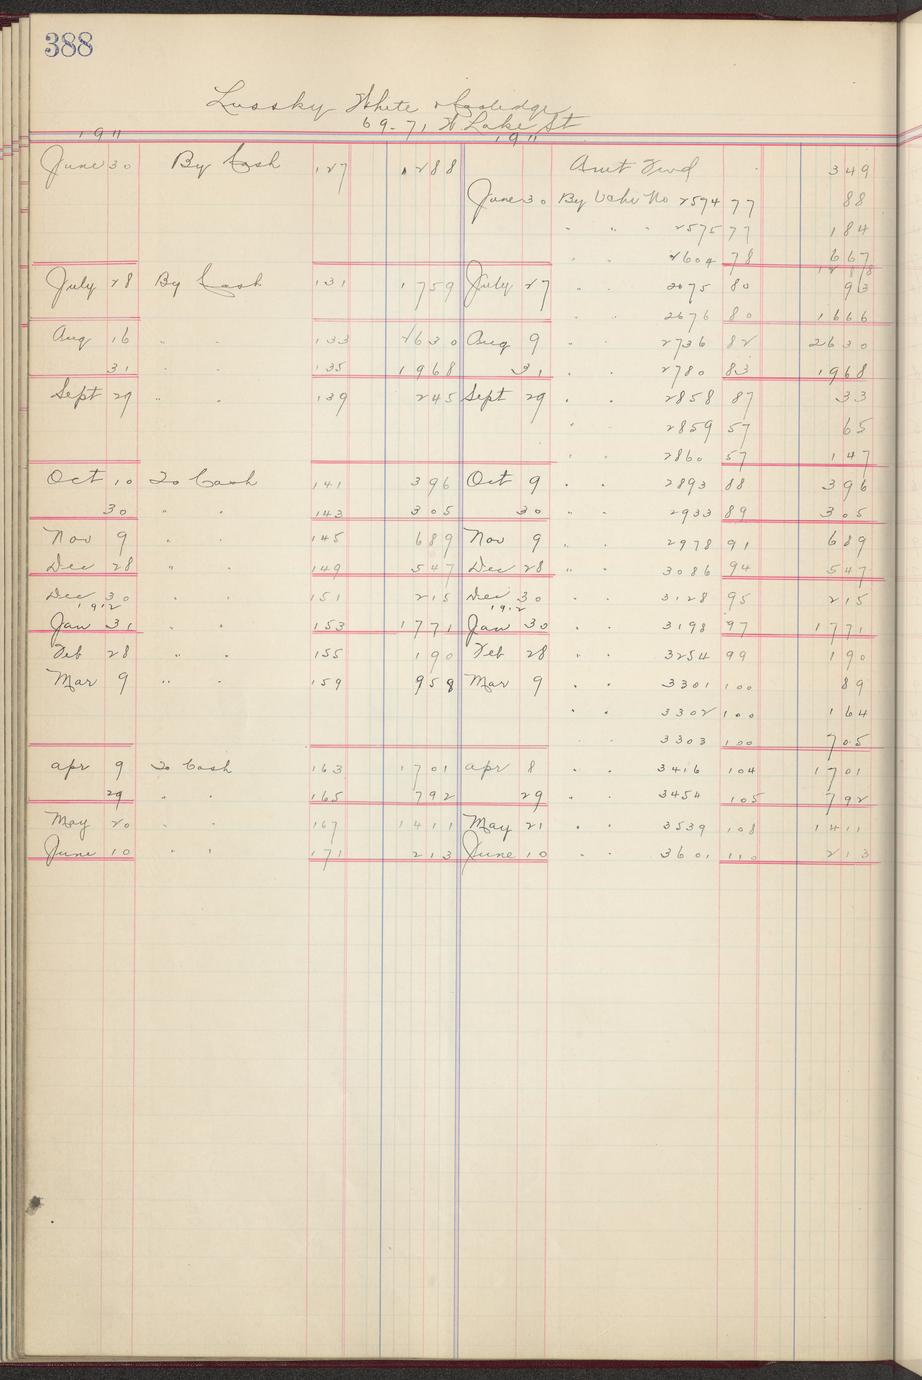 388
Lussky White & Coolidge
69-71 W Lake St
1911 1911
June 30 By Cash 127 1288 Amt Fwd 349
June 30 By Vchr No 2574 77 88
" " " 2575 77 184
" " 2604 78 667
1288
July 28 By Cash 131 1759 July 27 " " 2675 80 93
" " 2676 80 1666
Aug 16 " " 133 2630 Aug 9 " " 2736 82 2630
31 " " 135 1968 31 " " 2780 83 1968
Sept 29 " " 139 245 Sept 29 " " 2858 87 33
" 2859 57 65
" " 2860 57 147
Oct 10 To Cash 141 396 Oct 9 " " 2893 88 396
30 " " 143 305 30 " " 2933 89 305
Nov 9 " " 145 689 Nov 9 " " 2978 91 689
Dec 28 " " 149 547 Dec 28 " " 3086 94 547
Dec 30 " " 151 215 Dec 30 " " 3128 95 215
1912 1912
Jan 31 " " 153 1771 Jan 30 " " 3198 97 1771
Feb 28 " " 155 190 Feb 28 " " 3254 99 190
Mar 9 " " 159 958 Mar 9 " " 3301 100 89
" " 3302 100 164
" " 3303 100 705
Apr 9 To Cash 163 1701 Apr 8 " " 3416 104 1701
29 " " 165 792 29 " " 3454 105 792
May 20 " " 167 1411 May 21 " " 3539 108 1411
June 10 " " 171 213 June 10 " " 3601 110 213